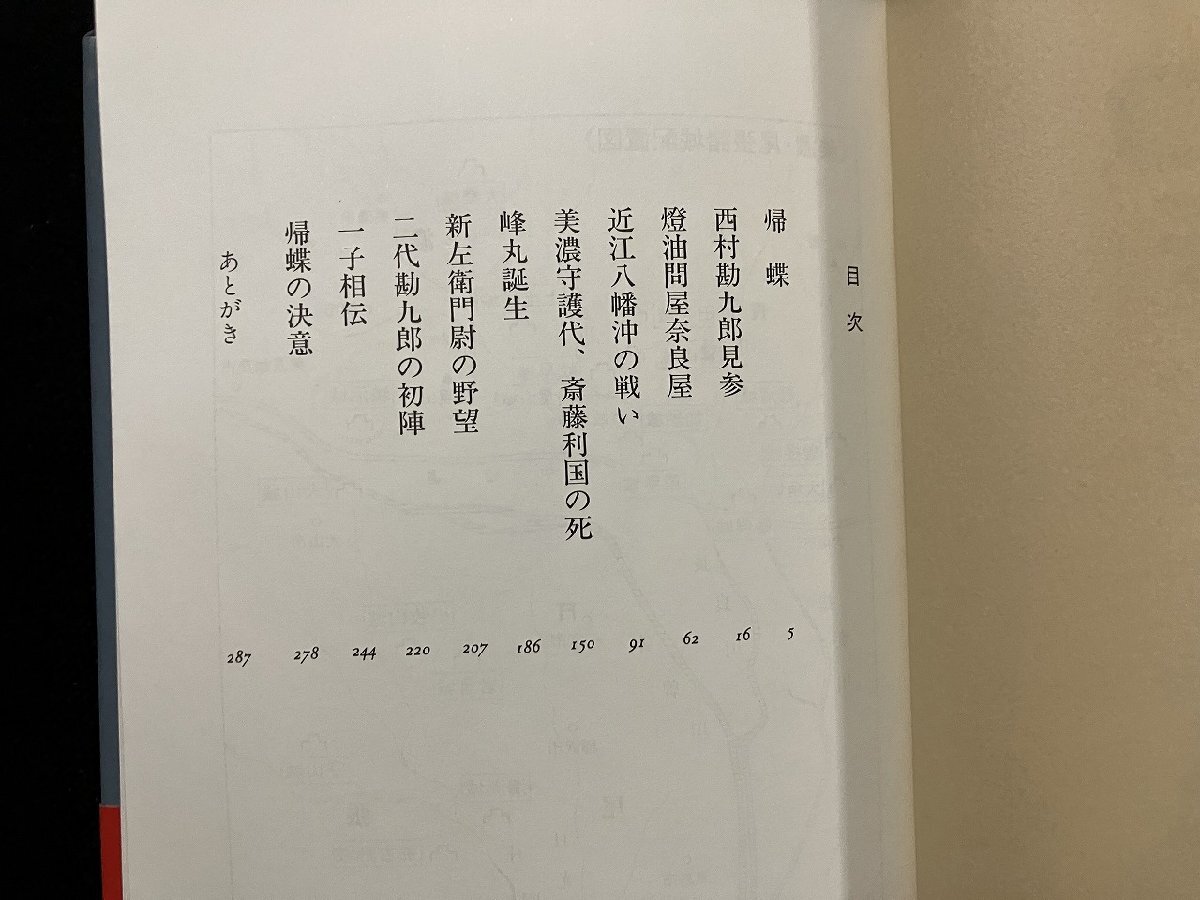 目次
帰蝶 5
西村勘九郎見参 16
燈油問屋奈良屋 62
近江八幡沖の戦い 91
美濃守護代、斎藤利国の死 150
峰丸誕生 186
新左衛門尉の野望 207
二代勘九郎の初陣 220
一子相伝 244
帰蝶の決意 278
あとがき 287